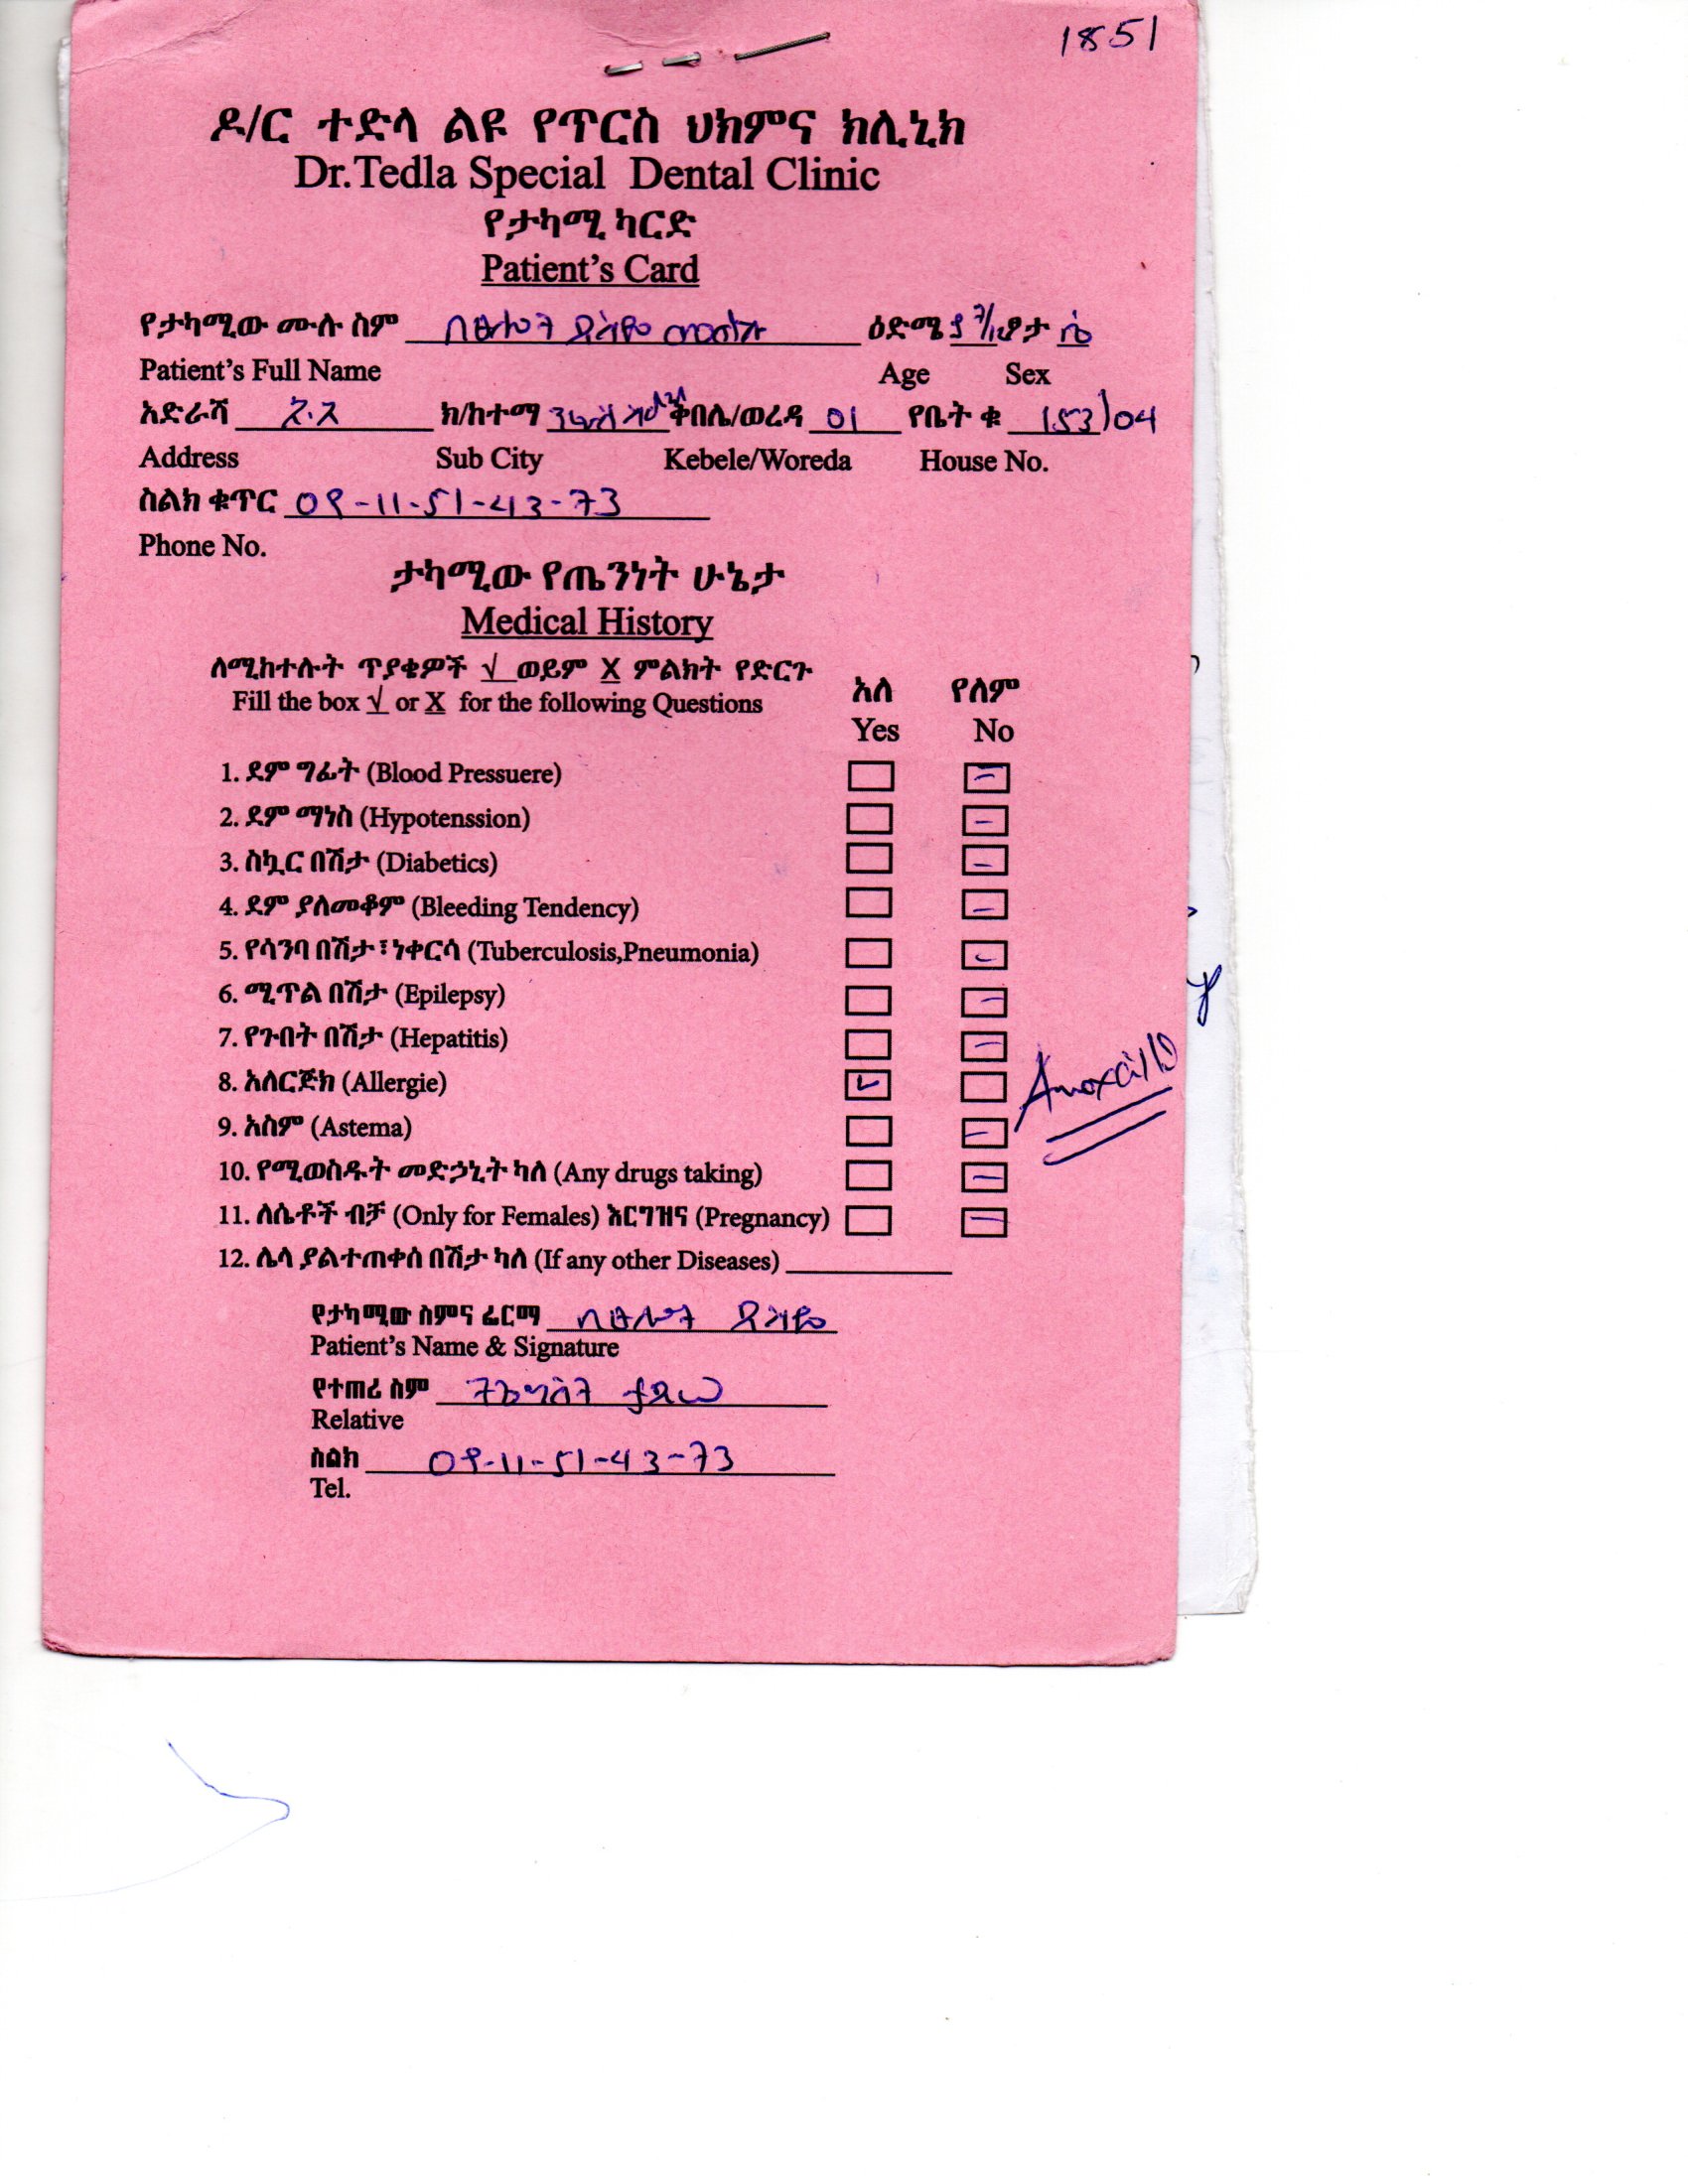 1851
ዶ/ር ተድላ ልዩ የጥርስ ህክምና ክሊኒክ
Dr.Tedla Special Dental Clinic
የታካሚ ካርድ
Patient's Card
የታካሚው ሙሉ ስም ዕድሜ ፆታ ሴ
Patient's Full Name Age Sex
አድራሻ አ.አ ክ/ከተማ ቀበሌ/ወረዳ 01 የቤት ቁ 153/04
Address Sub City Kebele/Woreda House No.
ስልክ ቁጥር 09-11-51-43-73
Phone No.
ታካሚው የጤንነት ሁኔታ
Medical History
ለሚከተሉት ጥያቄዎች √ ወይም X ምልክት የድርጉ
Fill the box √ or X for the following Questions
አለ የለም
Yes No
1. ደም ግፊት (Blood Pressuere) –
2. ደም ማነስ (Hypotenssion) –
3. ስኳር በሽታ (Diabetics) –
4. ደም ያለመቆም (Bleeding Tendency) –
5. የሳንባ በሽታ፣ነቀርሳ (Tuberculosis,Pneumonia) –
6. ሚጥል በሽታ (Epilepsy) –
7. የጉበት በሽታ (Hepatitis) –
8. አለርጅክ (Allergie) ✓
9. አስም (Astema) –
10. የሚወስዱት መድኃኒት ካለ (Any drugs taking) –
11. ለሴቶች ብቻ (Only for Females) እርግዝና (Pregnancy) –
12. ሌላ ያልተጠቀሰ በሽታ ካለ (If any other Diseases)
የታካሚው ስምና ፊርማ
Patient's Name & Signature
የተጠሪ ስም ትዕግስት ታደሠ
Relative
ስልክ 09-11-51-43-73
Tel.